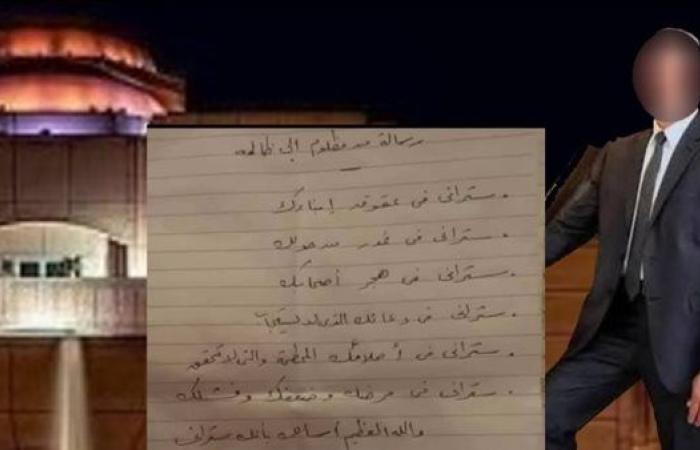 رسالة من مظلوم إلى ظالمه
ستراني في عقوق أبناءك
ستراني في غدر من حولك
ستراني في هجر أصحابك
ستراني في دعائك الذي لا يستجاب
ستراني في أحلامك المحطمة والتي لا تتحقق
ستراني في مرضك وضعفك وفشلك
والله العظيم أسألك بأنك ستراني